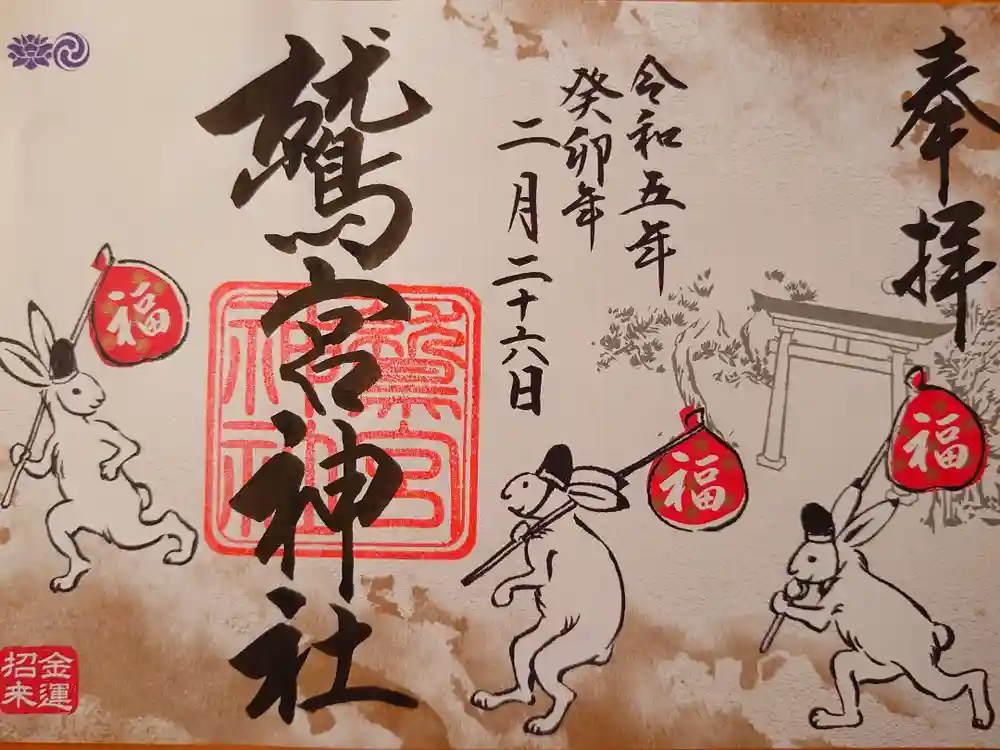 奉拝
令和五年
癸卯年
二月二十六日
鷲宮神社
鷲宮
神社
福
福
福
金運
招来